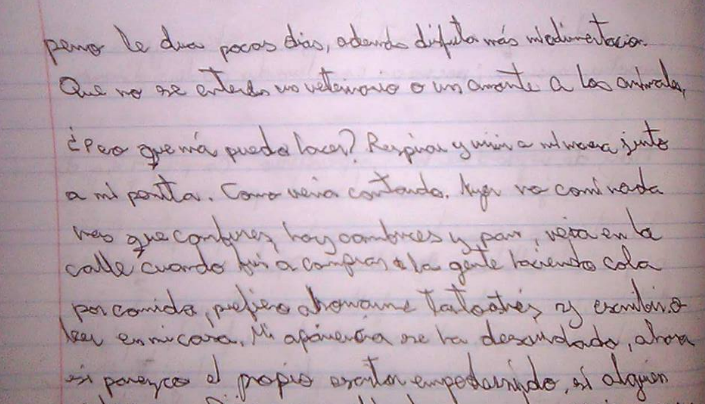 perro le dura pocos días, además disfruta más mi alimentación.
Que no se entere un veterinario o un amante a los animales,
¿Pero que más puedo hacer? Respirar y vivir a mi manera junto
a mi perrita. Como venia contando. Ayer no comí nada
mas que confites, hay cambures y pan, veía en la
calle cuando fui a comprar a la gente haciendo cola
por comida, prefiero ahorrarme tanto estrés y escribir o
leer en mi casa. Mi apariencia se ha descuidado, ahora
si parezco el propio escritor empedernido, si alguien